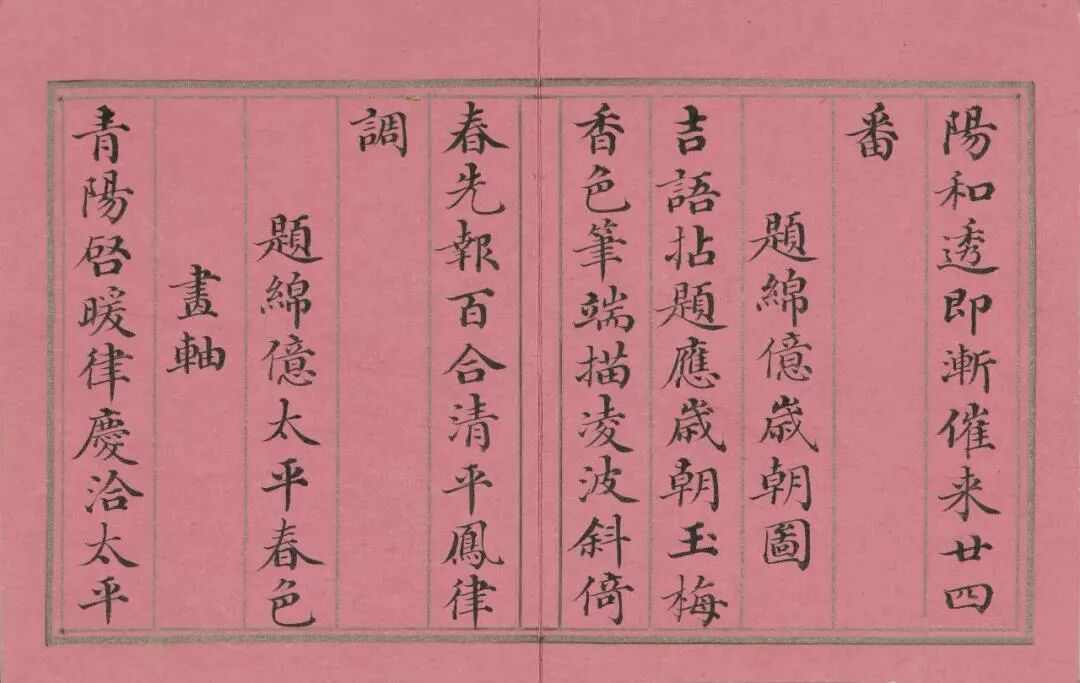 陽和透即漸催来廿四
番
題綿億歲朝圖
吉語拈題應歲朝玉梅
香色筆端描凌波斜倚
春先報百合清平鳳律
調
題綿億太平春色
畫軸
青陽啓暖律慶洽太平